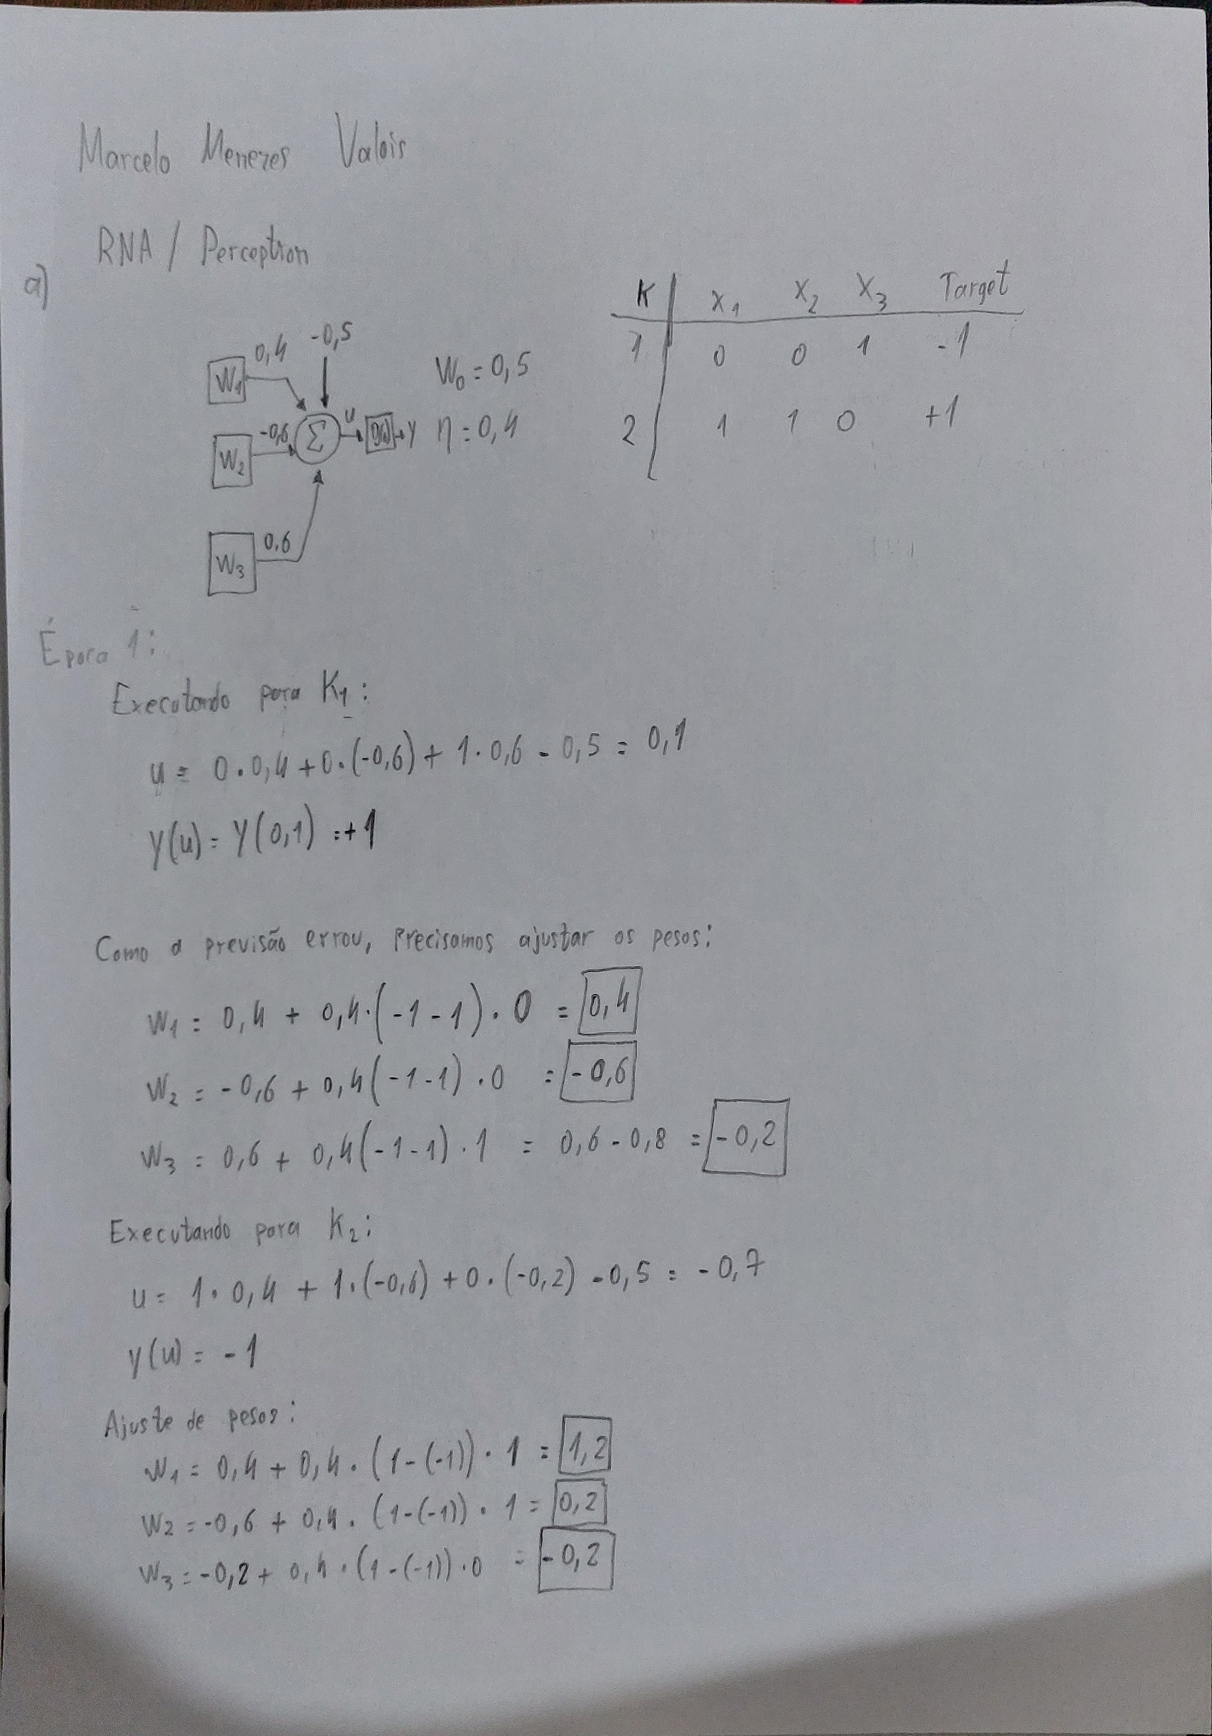 Marcelo Menezes Valois
RNA / Perception
a)
K X1 X2 X3 Target
1 0 0 1 -1
2 1 1 0 +1
W1 0,4 -0,5
W2 -0,6 Σ u g(u) y
W3 0,6
W0 = 0,5
η = 0,4
Época 1:
Executando para K1:
u = 0 · 0,4 + 0 · (-0,6) + 1 · 0,6 - 0,5 = 0,1
y(u) = y(0,1) = +1
Como a previsão errou, precisamos ajustar os pesos:
W1 = 0,4 + 0,4 · (-1 - 1) · 0 = 0,4
W2 = -0,6 + 0,4 (-1-1) · 0 = -0,6
W3 = 0,6 + 0,4 (-1-1) · 1 = 0,6 - 0,8 = -0,2
Executando para K2:
u = 1 · 0,4 + 1 · (-0,6) + 0 · (-0,2) - 0,5 = -0,7
y(u) = -1
Ajuste de pesos:
W1 = 0,4 + 0,4 · (1-(-1)) · 1 = 1,2
W2 = -0,6 + 0,4 · (1-(-1)) · 1 = 0,2
W3 = -0,2 + 0,4 · (1-(-1)) · 0 = -0,2